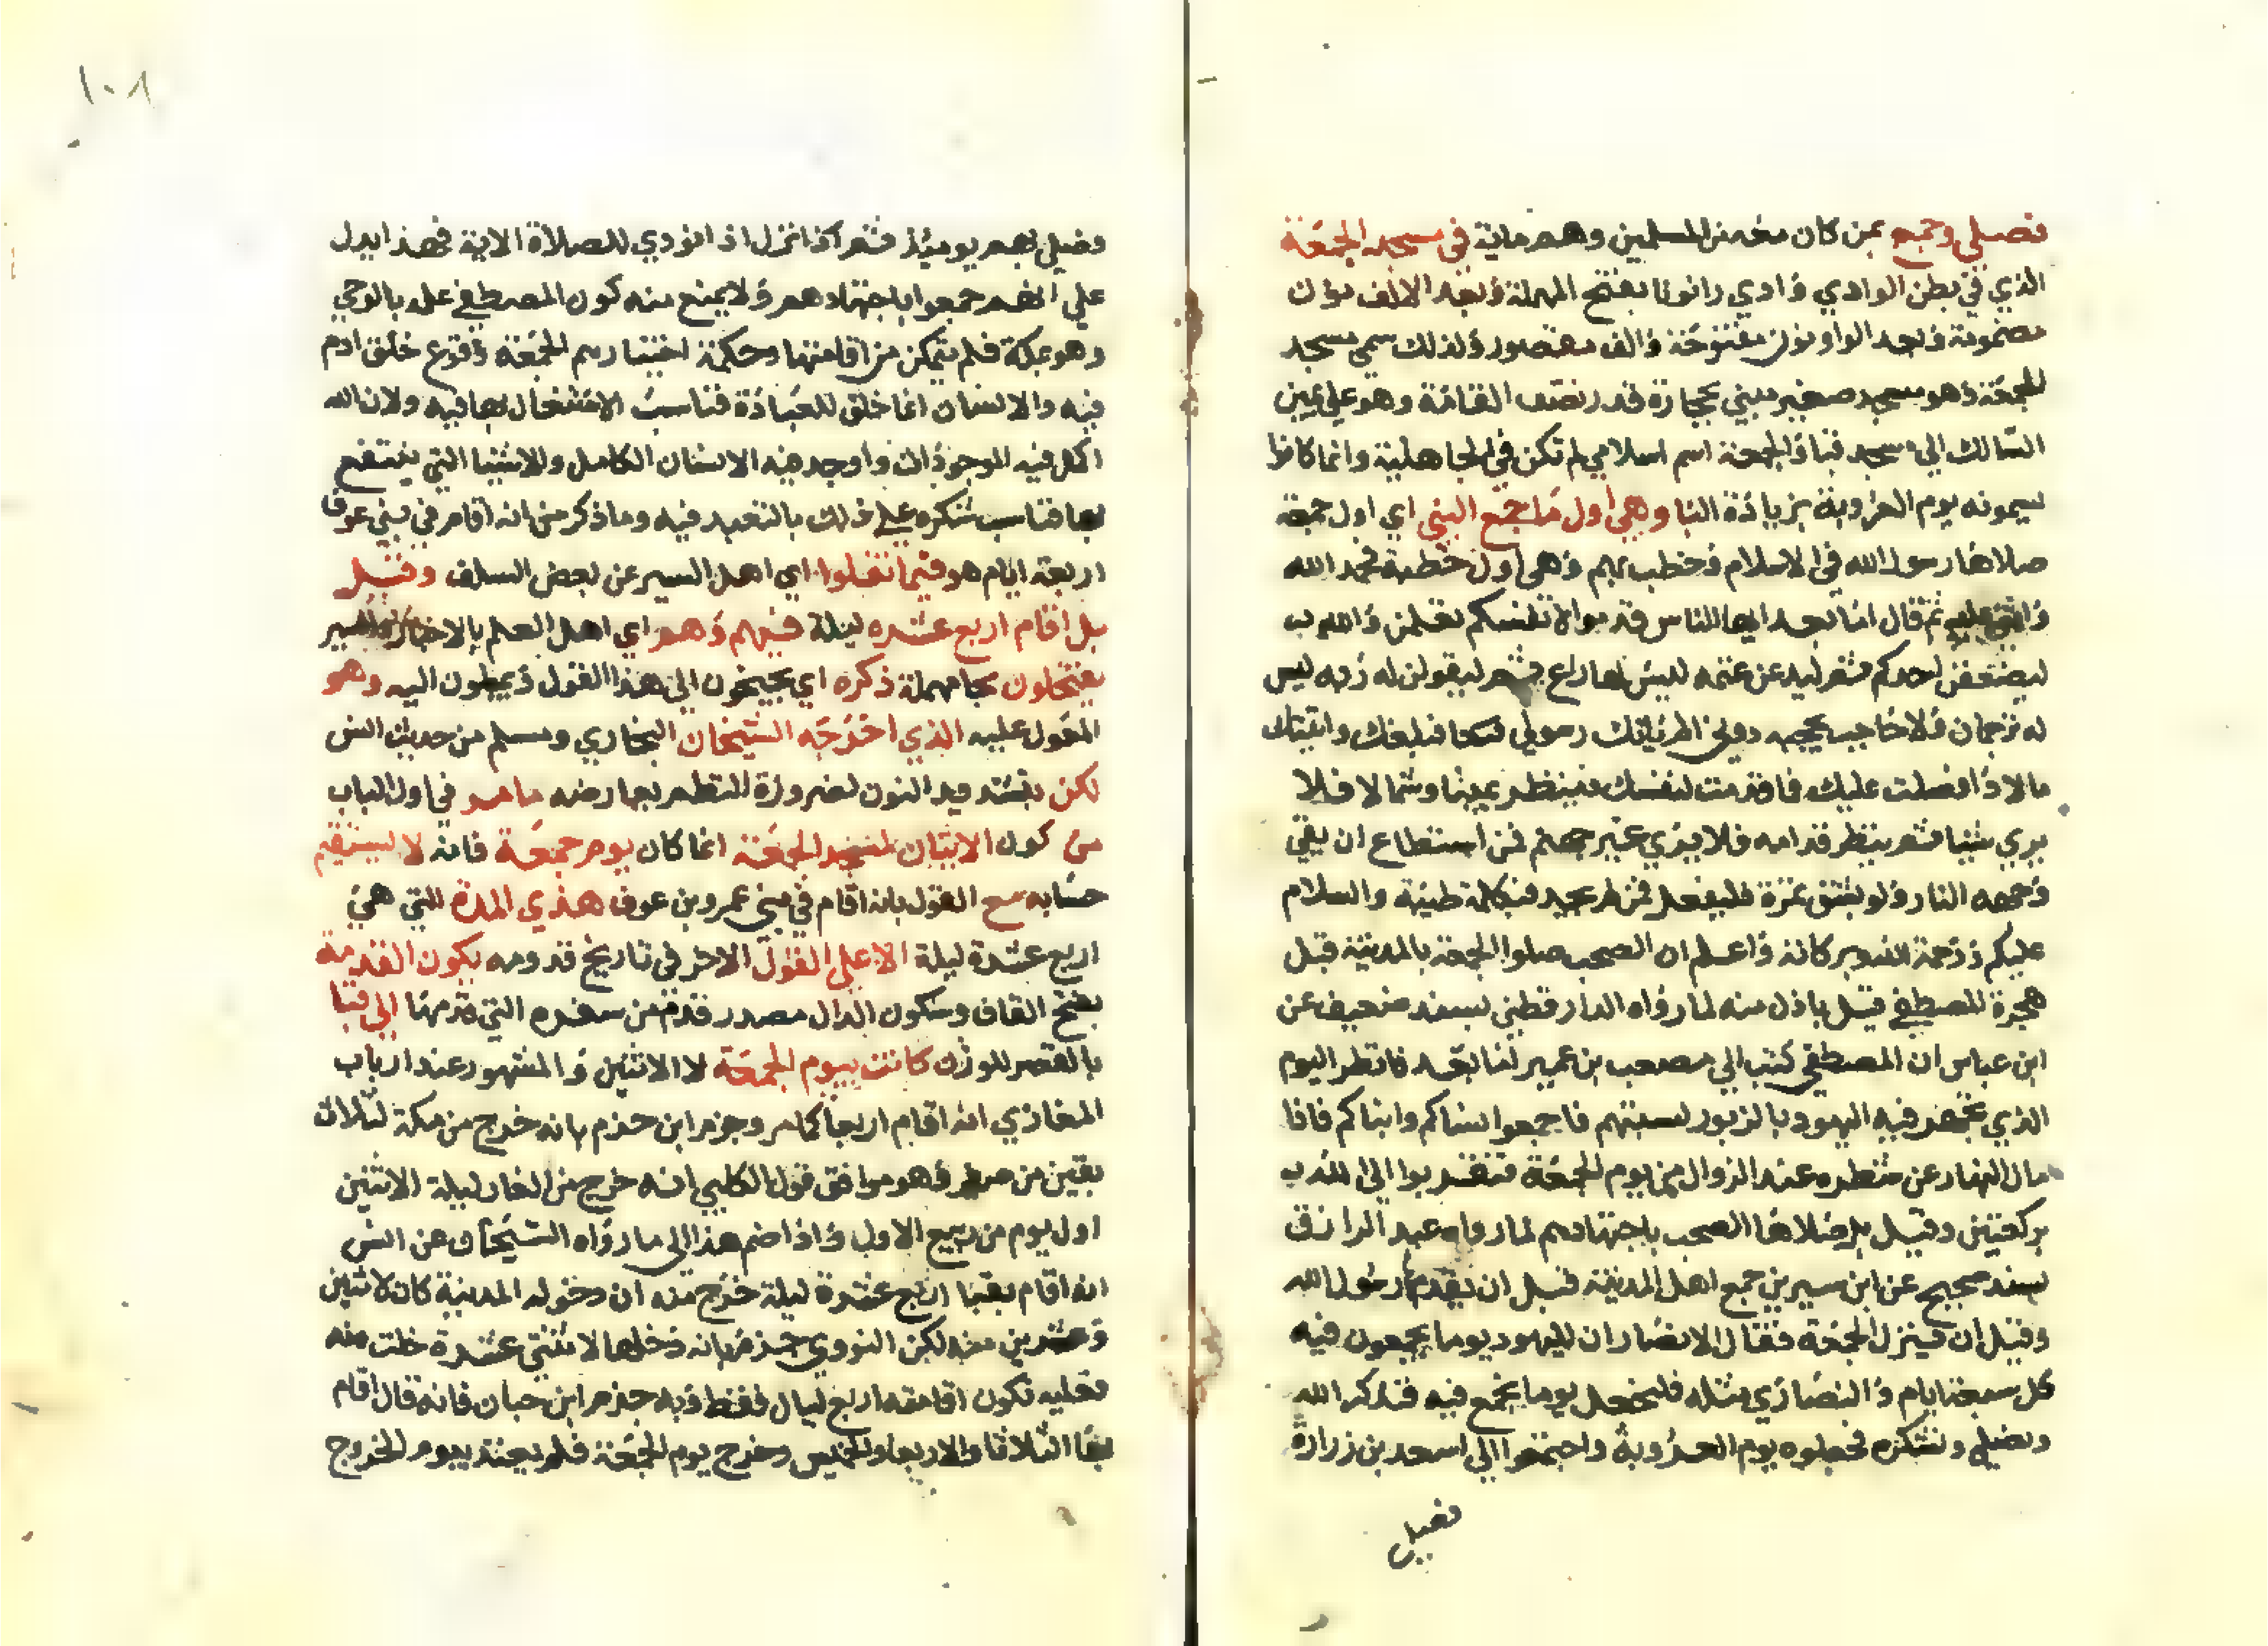 فصلى وجمع بمن كان معه من المسلمين وهم ماية في مسجد الجمعة
الذي في بطن الوادي وادي رانونا بفتح المهملة وبعد الالف نون
مضمومة وبعد الواو نون مفتوحة والف مقصور ولذلك سمي مسجد
الجمعة وهو مسجد صغير مبني بحجارة قدر نصف القامة وهو علي يمين
السالك الي مسجد قبا والجمعة اسم اسلامي لم تكن في الجاهلية وانما كانوا
يسمونه يوم العروبة بزيادة التا وهي أول ما جمع النبي اي اول جمعة
صلاها رسول الله في الاسلام وخطب بهم وهي اول خطبة فحمد الله
واثني عليه ثم قال اما بعد ايها الناس قدموا لانفسكم تعلمن والله
ليصعقن احدكم ثم ليدعن غنمه ليس لها راع ثم ليقولن له ربه ليس
له ترجمان ولا حاجب يحجبه دونه الم ياتك رسولي فبلغك واتيتك
مالا وافضلت عليك فما قدمت لنفسك فينظر يمينا وشمالا فلا
يري شيا ثم ينظر قدامه فلا يري غير جهنم فمن استطاع ان يقي
وجهه النار ولو بشق تمرة فليفعل فمن لم يجد فبكلمة طيبة والسلام
عليكم ورحمة الله وبركاته واعلم ان الصحب صلوا الجمعة بالمدينة قبل
هجرة المصطفي قيل باذن منه لما رواه الدارقطني بسند ضعيف عن
ابن عباس ان المصطفي كتب الي مصعب بن عمير اما بعد فانظر اليوم
الذي تجهر فيه اليهود بالزبور لسبتهم فاجمعوا نساكم وابناكم فاذا
مال النهار عن شطره عند الزوال من يوم الجمعة فتقربوا الي الله
بركعتين وقيل بل صلاها الصحب باجتهادهم لما رواه عبد الرازق
بسند صحيح عن ابن سيرين جمع اهل المدينة قبل ان يقدم رسول الله
وقبل ان تنزل الجمعة فقال الانصار ان لليهود يوما يجمعون فيه
كل سبعة ايام والنصاري مثله فلنجعل يوما نجمع فيه فنذكر الله
ونصلي ونشكره فجعلوه يوم العروبة واجتمعوا الي اسعد بن زرارة
فصلي بهم يوميذ ثم انزل اذا نودي للصلاة الاية فهذا يدل
علي انهم جمعوا باجتهادهم ولا يمنع منه كون المصطفي علمه بالوحي
وهو بمكة فلم يتمكن من اقامتها وحكمة اختيارهم الجمعة وقوع خلق ادم
فيه والانسان انما خلق للعبادة فناسب الاشتغال بها فيه ولان الله
اكمل فيه الموجودات واوجد فيه الانسان الكامل والاشيا التي ينتفع
بها فناسب شكره علي ذلك بالتعبد فيه وما ذكر من انه اقام في بني عوف
اربعة ايام هو فيما نقلوا اي اهل السير عن بعض السلف وقيل
بل اقام اربع عشره ليلة فيهم وهم اي اهل العلم بالاخبار والسير
ينتحلون بحا مهملة ذكره اي يجنحون الي هذا القول ويميلون اليه وهو
المعول عليه الذي اخرجه الشيخان البخاري ومسلم من حديث انس
لكن بتشديد النون لضرورة النظم يعارضه ما مر في اول الباب
من كون الاتيان لمسجد الجمعة انما كان يوم جمعة فانه لا يستقيم
حسابه مع القول بانه اقام في بني عمرو بن عوف هذي المدة التي هي
اربع عشرة ليلة الا علي القول الاخر في تاريخ قدومه بكون القدمة
بفتح القاف وسكون الدال مصدر قدم من سفره التي قدمها الي قبا
بالقصر للوزن كانت بيوم الجمعة لا الاثنين والمشهور عند ارباب
المغازي انه اقام اربعا كما مر وجزم ابن حزم بانه خرج من مكة لثلاث
بقين من صفر وهو موافق قول الكلبي انه خرج من الغار ليلة الاثنين
اول يوم من ربيع الاول واذا ضم هذا الي ما رواه الشيخان عن انس
انه اقام بقبا اربع عشرة ليلة خرج منه ان دخوله المدينة كان لاثنين
وعشرين منه لكن النووي جزم بانه دخلها لاثنتي عشرة خلت منه
فعليه تكون اقامته اربع ليال فقط وبه جزم ابن حبان فانه قال اقام
بها الثلاثا والاربعا والخميس وخرج يوم الجمعة فلم يعتد بيوم الخروج
فصلي
١٠٨